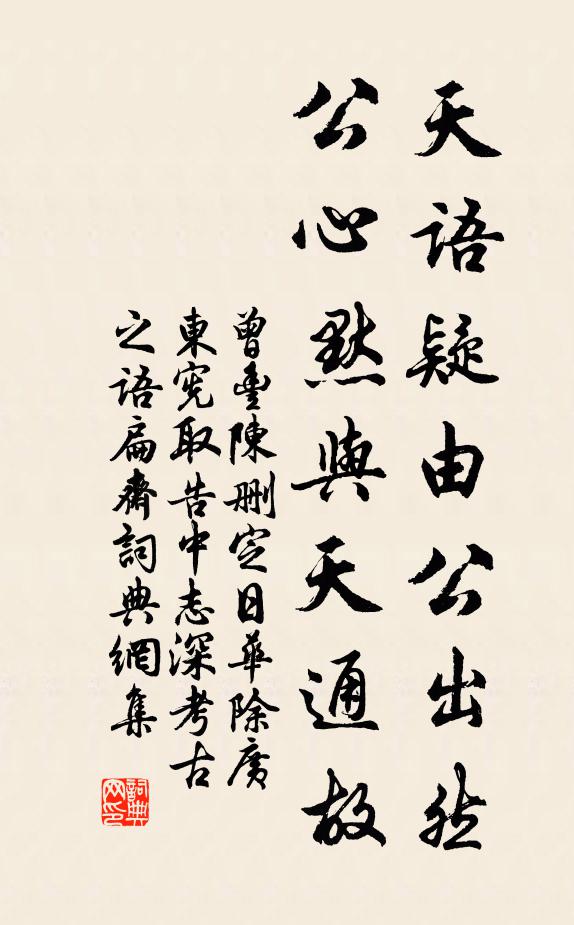 天語疑由公出然
公心默與天通故
曾豐陳刪定日華除廣
東憲取告中志深考古
之語扁齋詞典網集
詞典
网印